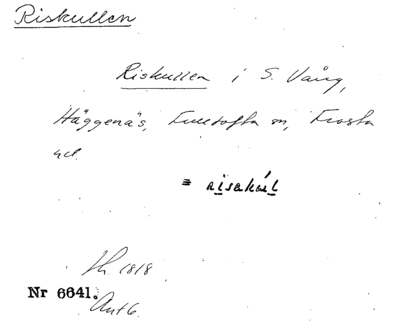 Riskullen
Riskullen i S. Vång,
Häggenäs, Fulltofta sn, Frosta
hd.
= risakul
Sk. 1818
Nr 6641.
Ant 6.